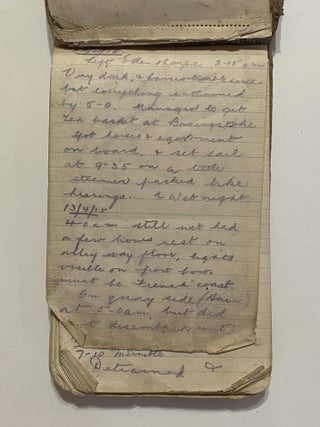 Left Edenthorpe 2-15 a.m
Very dark, &
but everything entrained
by 5-0. Managed to get
tea basket at Basingstoke
Got horses & equipment
on board, & set sail
at 9-35 on a little
steamer packed like
herrings. A wet night.
13/4/15
4-0 am still wet had
a few hours rest on
alley way floor, lights
visible on port bow.
must be French coast.
On quay side (Havre)
at 5-0am, but did
not disembark until
7-10
Detrained &